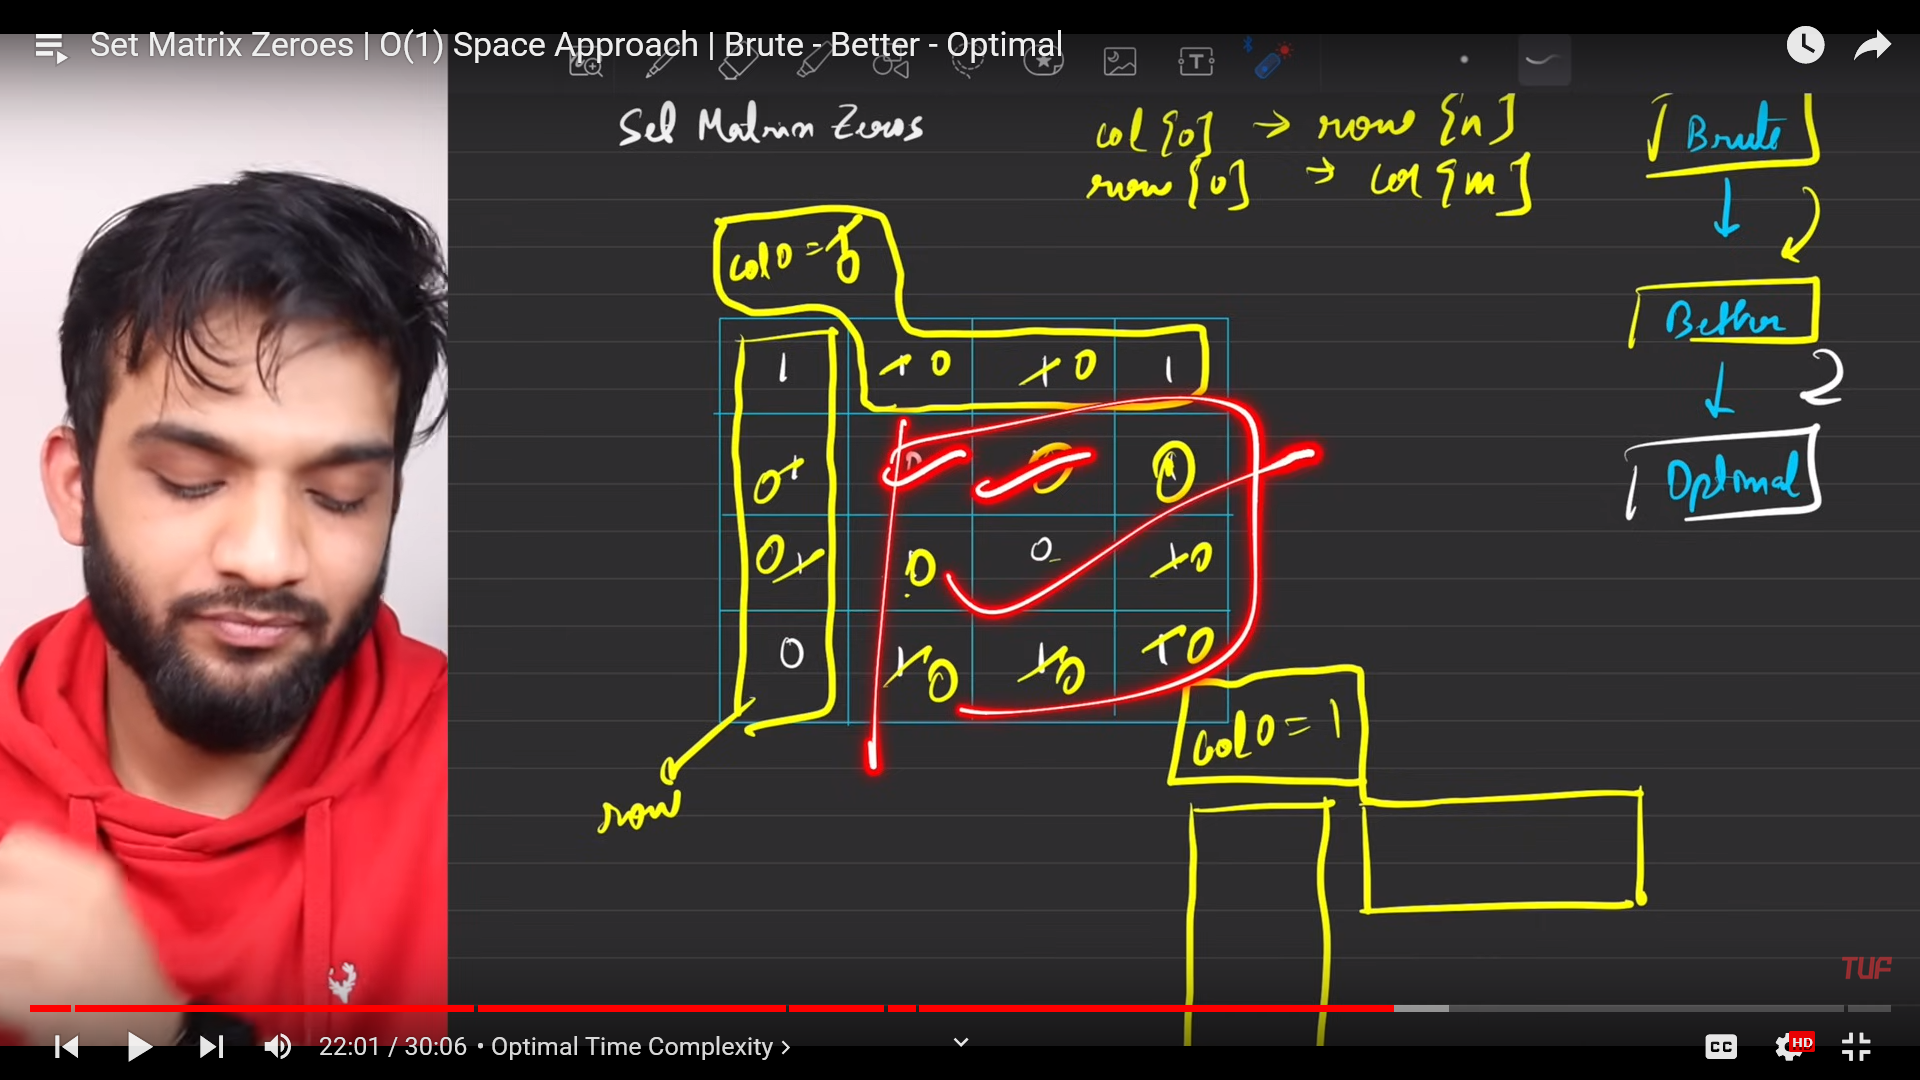 Set Matrix Zeroes | O(1) Space Approach | Brute - Better - Optimal
Set Matrix Zeros
col[0] → row [n]
row [0] → col [m]
Brute
Better
2
Optimal
col0 =
1 0 0 1
0 0
0 0 0 0
0 0 0 0
row
col0 = 1
TUF
22:01 / 30:06 • Optimal Time Complexity >
CC
HD